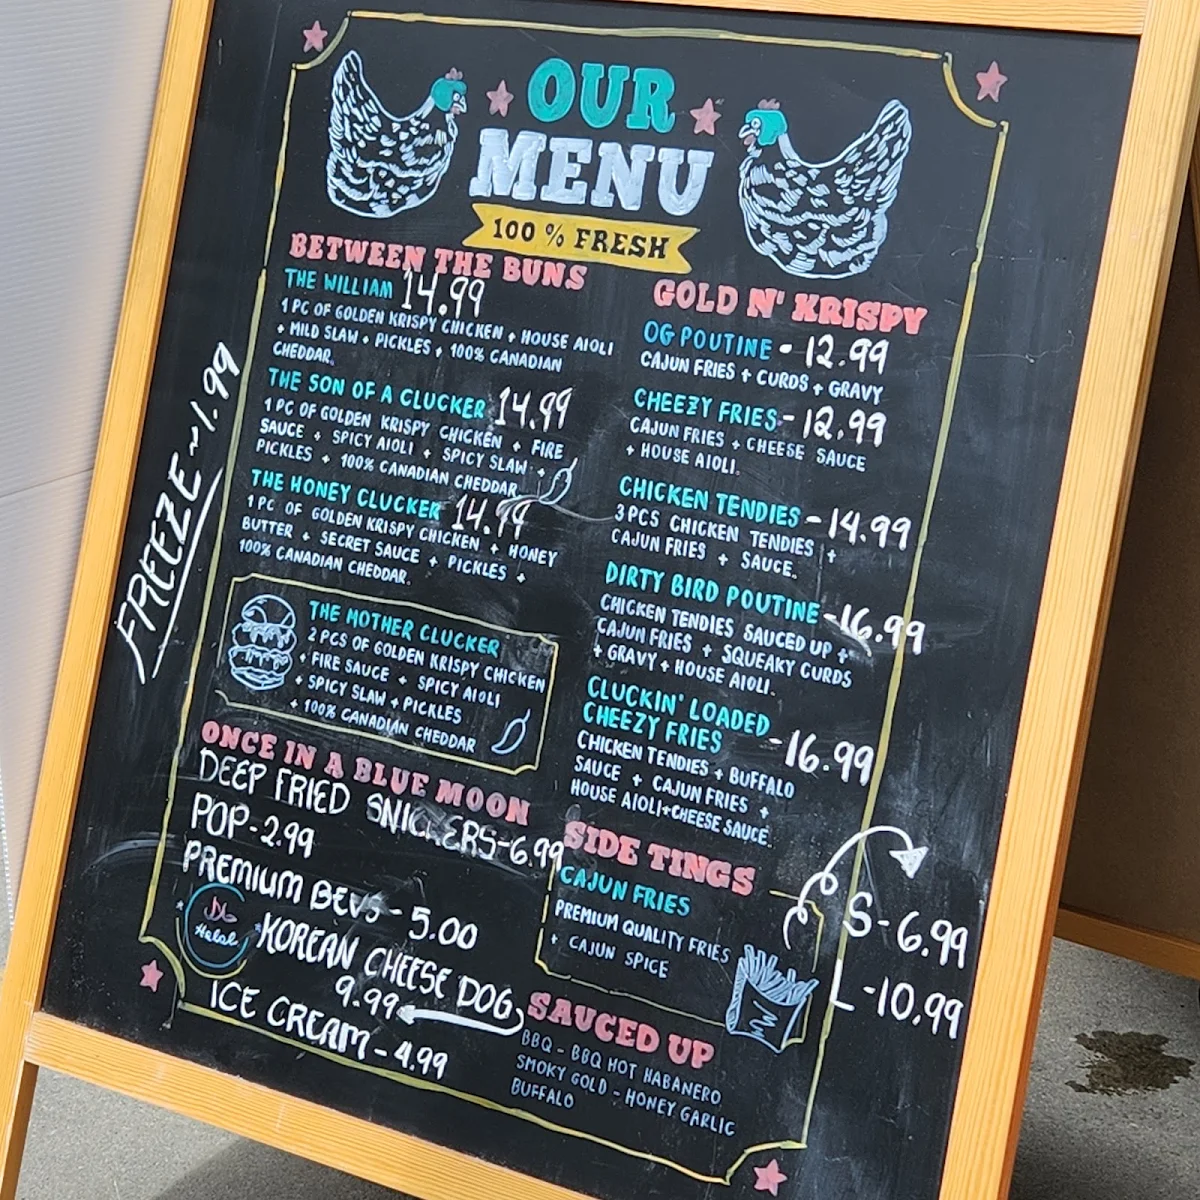 OUR
MENU
100 % FRESH
BETWEEN THE BUNS
THE WILLIAM 14.99
1 PC OF GOLDEN KRISPY CHICKEN + HOUSE AIOLI
+ MILD SLAW + PICKLES + 100% CANADIAN
CHEDDAR.
THE SON OF A CLUCKER 14.99
1 PC OF GOLDEN KRISPY CHICKEN + FIRE
SAUCE + SPICY AIOLI + SPICY SLAW +
PICKLES + 100% CANADIAN CHEDDAR
THE HONEY CLUCKER 14.99
1 PC OF GOLDEN KRISPY CHICKEN + HONEY
BUTTER + SECRET SAUCE + PICKLES +
100% CANADIAN CHEDDAR.
THE MOTHER CLUCKER
2 PCS OF GOLDEN KRISPY CHICKEN
+ FIRE SAUCE + SPICY AIOLI
+ SPICY SLAW + PICKLES
+ 100% CANADIAN CHEDDAR
ONCE IN A BLUE MOON
DEEP FRIED SNICKERS-6.99
POP-2.99
PREMIUM BEVS - 5.00
Halal
KOREAN CHEESE DOG
9.99
ICE CREAM - 4.99
FREEZE ~ 1.99
GOLD N' KRISPY
OG POUTINE - 12.99
CAJUN FRIES + CURDS + GRAVY
CHEEZY FRIES - 12.99
CAJUN FRIES + CHEESE SAUCE
+ HOUSE AIOLI.
CHICKEN TENDIES - 14.99
3 PCS CHICKEN TENDIES +
CAJUN FRIES + SAUCE.
DIRTY BIRD POUTINE - 16.99
CHICKEN TENDIES SAUCED UP +
CAJUN FRIES + SQUEAKY CURDS
+ GRAVY + HOUSE AIOLI.
CLUCKIN' LOADED
CHEEZY FRIES - 16.99
CHICKEN TENDIES + BUFFALO
SAUCE + CAJUN FRIES +
HOUSE AIOLI+CHEESE SAUCE.
SIDE TINGS
CAJUN FRIES
PREMIUM QUALITY FRIES
+ CAJUN SPICE
S - 6.99
L - 10.99
SAUCED UP
BBQ - BBQ HOT HABANERO
SMOKY GOLD - HONEY GARLIC
BUFFALO